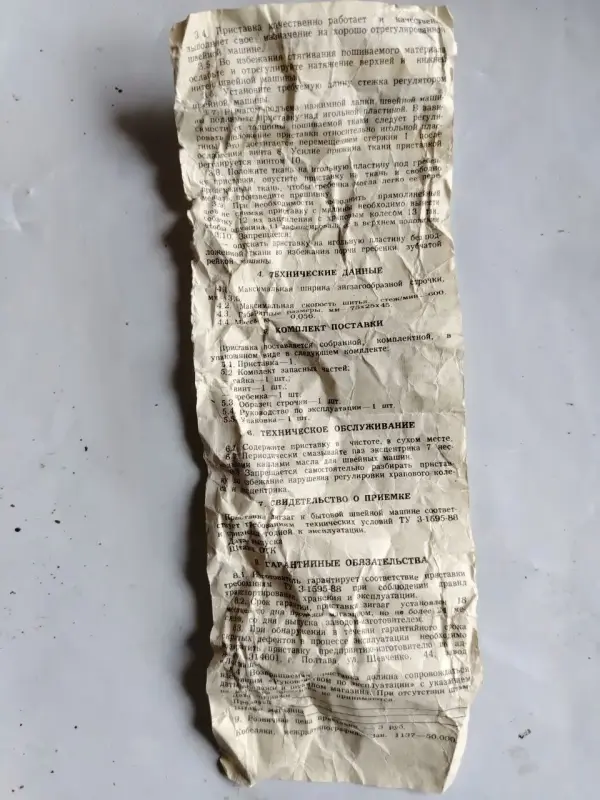 3.4. Приставка качественно работает и качествен-
выполняет свое назначение на хорошо отрегулированно
швейной машине.
3.5. Во избежания стягивания пошиваемого материала
ослабьте и отрегулируйте натяжение верхней и нижне
нитей швейной машины
Установите требуемую длину стежка регулятором
швейной машины.
прижимной лапки швейной маши
приставку над игольной пластиной. В зави
симости толщины пошиваемой ткани следует регули
ровать положение приставки относительно игольной плас
достигается перемещением стержня 1 после
ослабления винта 8. Усилие прижима ткани приставкой
регулируется винтом 10.
3.8. Положите ткань на игольную пластину под гре
приставки, опустите приставку на ткань и свободно
ткань, чтобы гребенка могла легко ее пере
произведите прошивание.
При необходимости прямолинейный
не снимая приставку с машины необходимо вывести
собачку 12 из зацепления с храповым колесом 13
в верхнем положении
3.10. Запрещается:
— опускать приставку на игольную пластину без под-
ложенной ткани во избежания порчи гребенки зубчатой
рейкой машины.
4. ТЕХНИЧЕСКИЕ ДАННЫЕ
4.1. Максимальная ширина зигзагообразной строчки,
мм
4.2. Максимальная скорость шитья, стеж/мин 600
4.3. Габаритные размеры, мм 75×25×45
4.4. Масса 0,056.
КОМПЛЕКТ ПОСТАВКИ
Приставка поставляется собранной, комплектной, в
упакованном виде в следующем комплекте:
5.1. Приставка—1.
5.2 Комплект запасных частей:
гайка—1 шт.;
винт—1 шт.;
гребенка—1 шт.
5.3. Образец строчки—1 шт.
5.4. Руководство по эксплуатации—1 шт.
5.5. Упаковка—1 шт.
6. ТЕХНИЧЕСКОЕ ОБСЛУЖИВАНИЕ
6.1. Содержите приставку в чистоте, в сухом месте.
Периодически смазывайте паз эксцентрика 7 нес-
кольками каплями масла для швейных машин.
Запрещается самостоятельно разбирать пристав-
во избежание нарушения регулировки храпового коле-
са и эксцентрика.
7. СВИДЕТЕЛЬСТВО О ПРИЕМКЕ
Приставка зигзаг к бытовой швейной машине соответ-
ствует требованиям технических условий ТУ 3-1595-88
и признана годной к эксплуатации.
Дата выпуска
Штамп ОТК
8. ГАРАНТИЙНЫЕ ОБЯЗАТЕЛЬСТВА
8.1. Изготовитель гарантирует соответствие приставки
требованиям ТУ 3-1595-88 при соблюдении правил
транспортировки, хранения и эксплуатации.
8.2. Срок гарантии приставки зигзаг установлен 18
со дня продажи магазином, но не более
со дня выпуска заводом-изготовителем.
При обнаружении в течении гарантийного срока
скрытых дефектов в процессе эксплуатации необходимо
приставку предприятию-изготовителю на
314601, Полтава ул. Шевченко 44,
приставка должна сопровождаться
«Руководством по эксплуатации» с указанием
магазина. При отсутствии
не принимаются.
магазина
9. Розничная цена приставки 3 руб.
Кобеляки, межрайтипография, зак. 1137—50.000